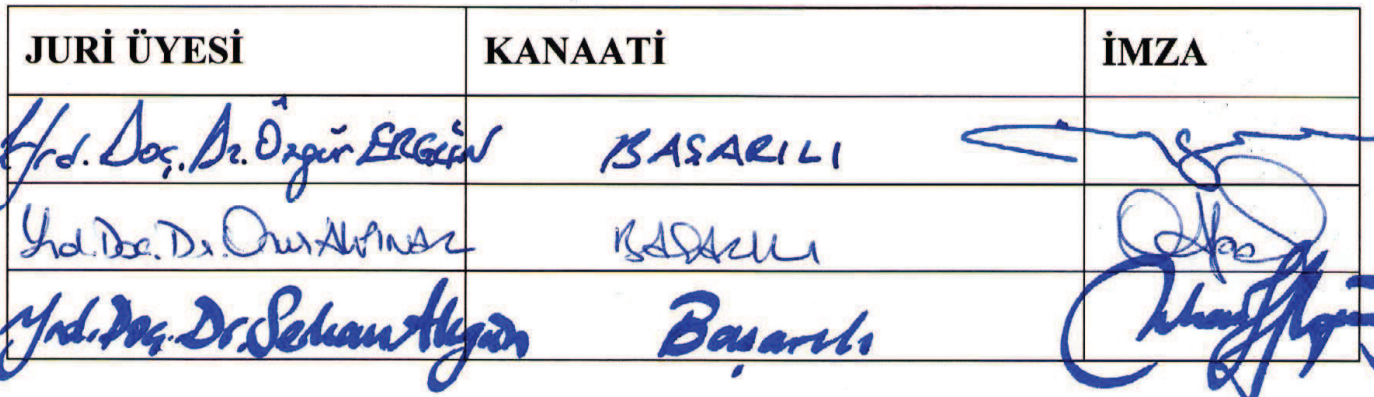 JURİ ÜYESİ KANAATİ İMZA
Yrd. Doç. Dr. Özgür ERGÜN BAŞARILI
Yrd. Doç. Dr. Onur AKPINAR BAŞARILI
Yrd. Doç. Dr. Akgün Başarılı